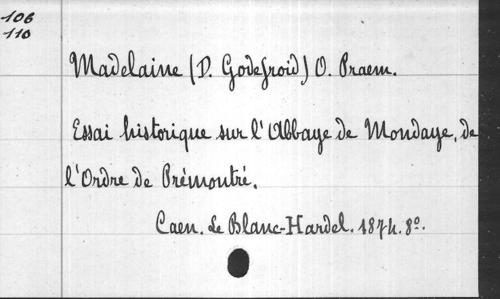 106
110
Madelaine (D. Godefroid) O. Praem.
Essai historique sur l'Abbaye de Mondaye, de
l'Ordre de Prémontré.
Caen. Le Blanc-Hardel. 1874. 8º.